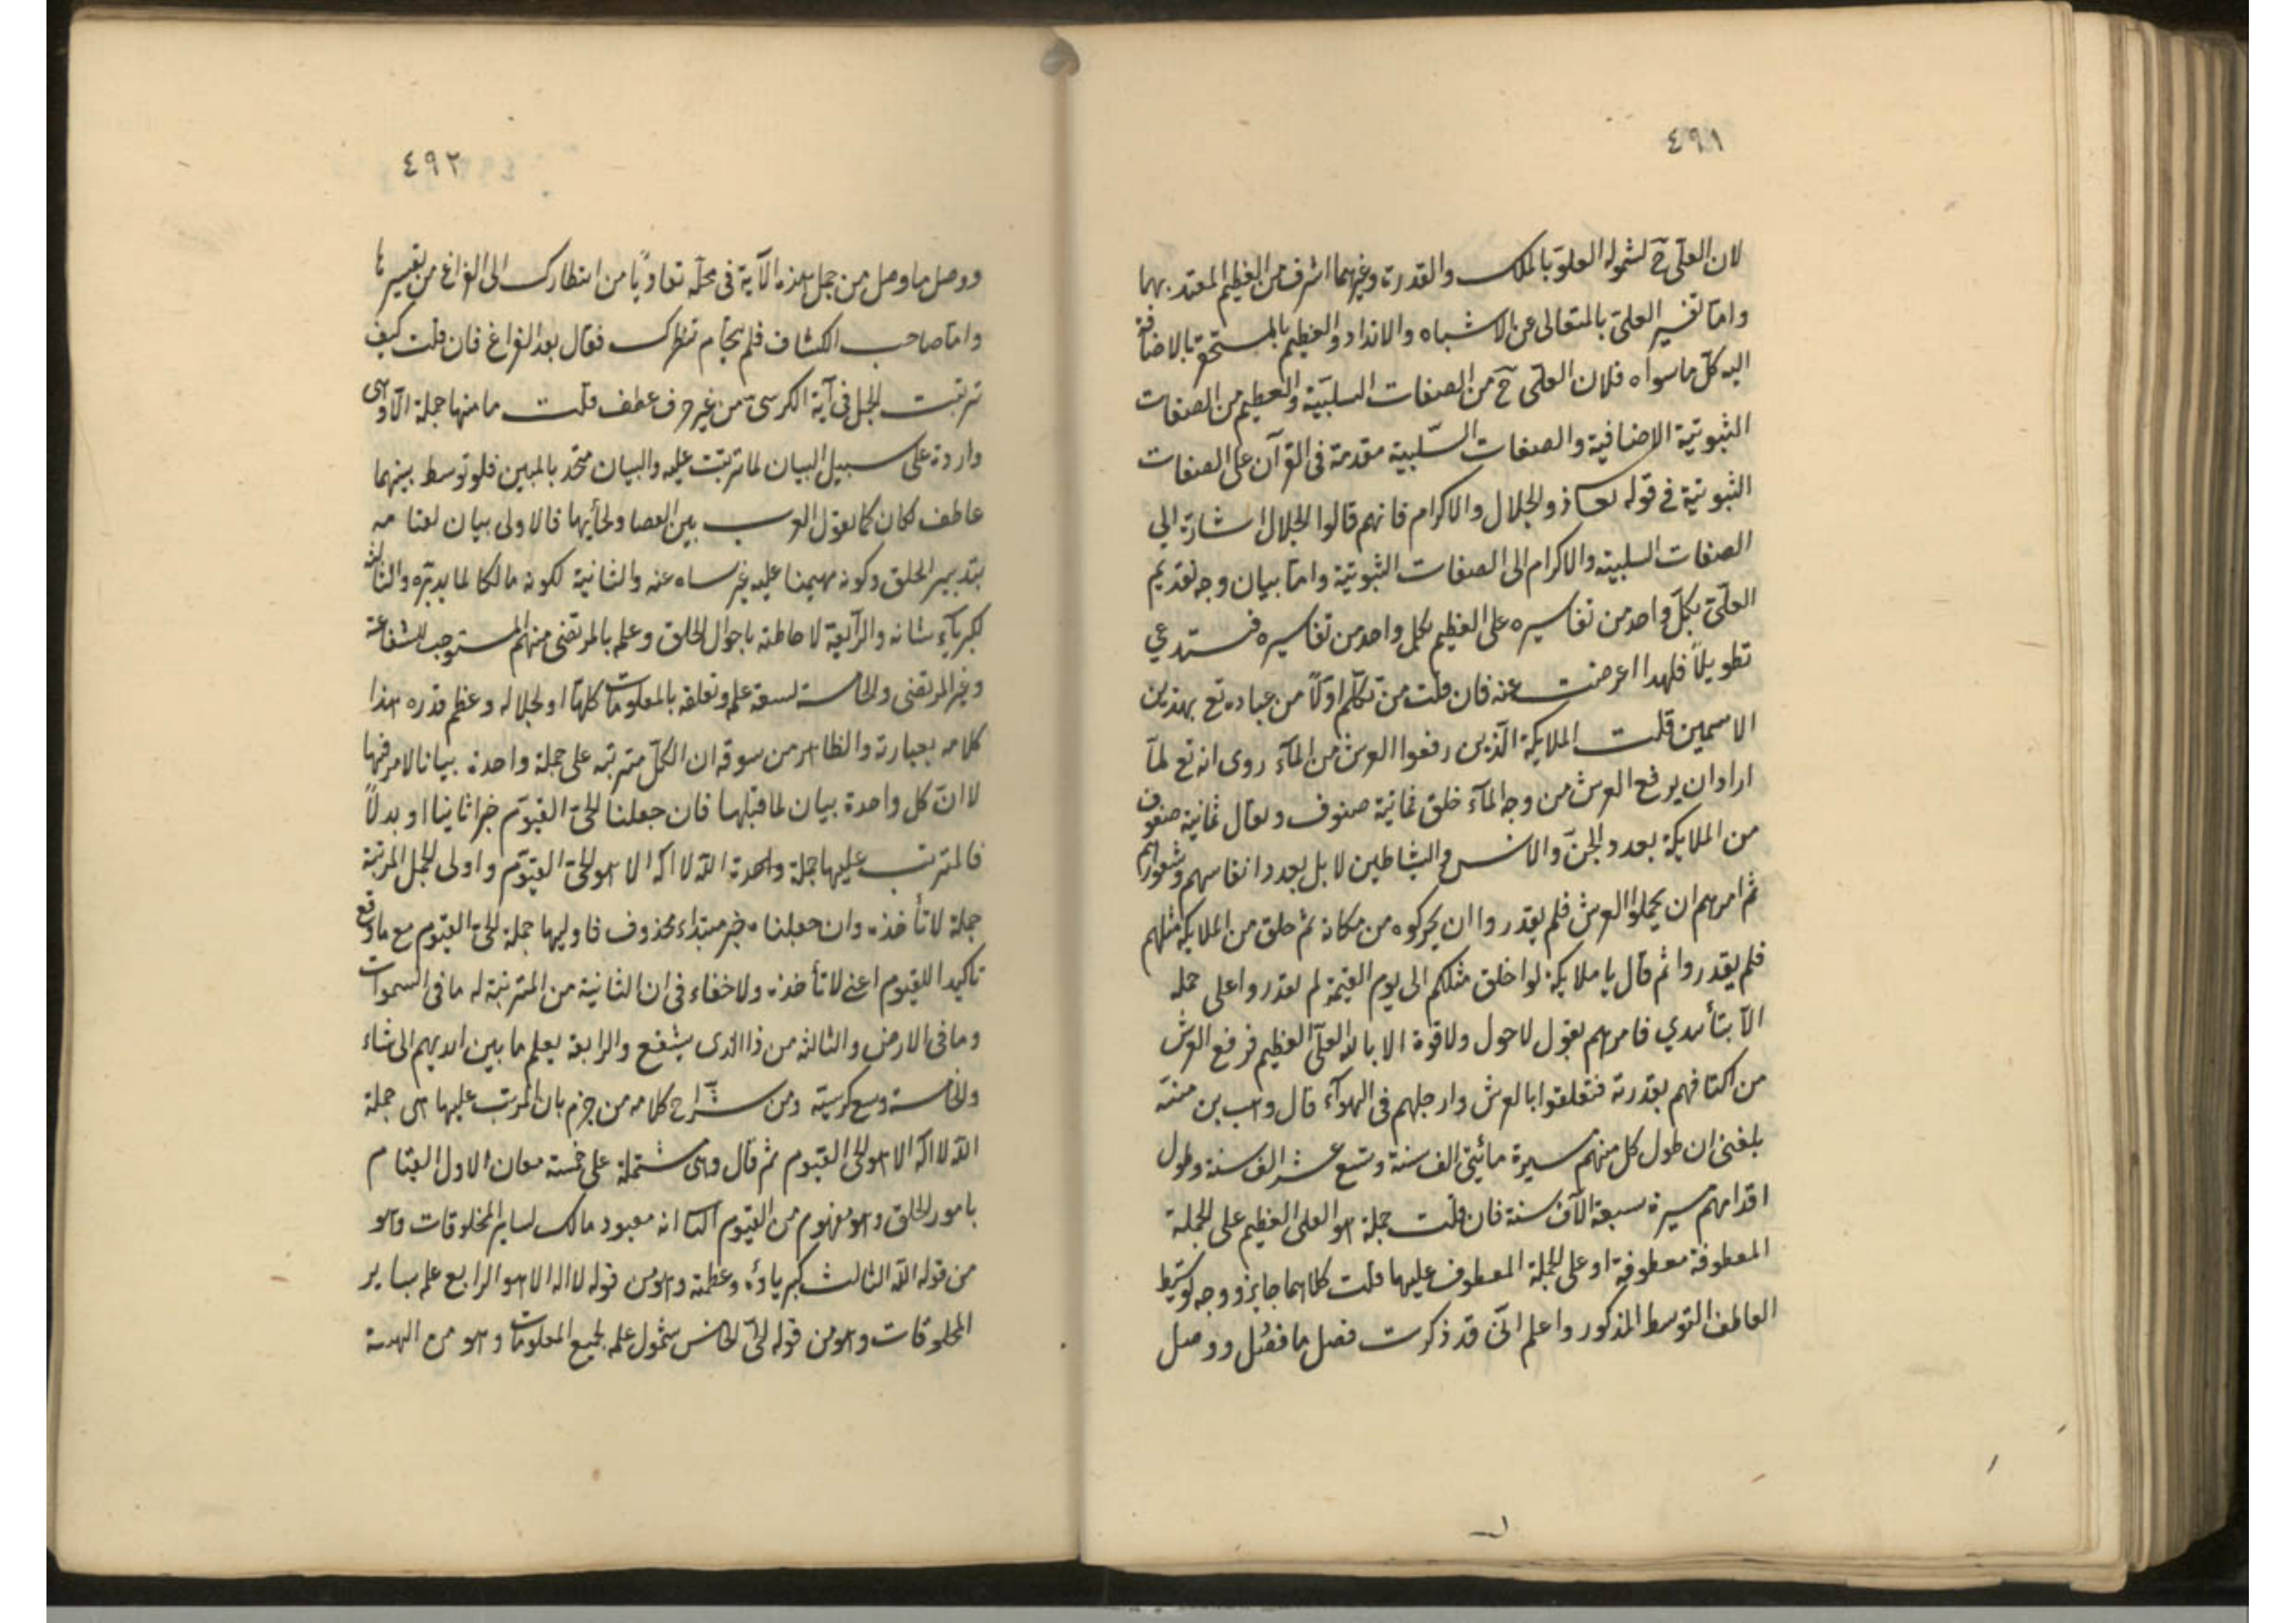 ٤٩١
لان العلى ح لشموله العلو بالملك والقدرة وغيرهما اشرف من العظيم المعتد بهما
واما تفسير العلى بالمتعالى عن الاشباه والانداد والعظيم بالمستحقر بالاضافة
اليه كل ما سواه فلان العلى ح من الصفات السلبية والعظيم من الصفات
الثبوتية الاضافية والصفات السلبية مقدمة فى القرآن على الصفات
الثبوتية فى قوله تعا ذو الجلال والاكرام فانهم قالوا الجلال اشارة الى
الصفات السلبية والاكرام الى الصفات الثبوتية واما بيان وجه تقديم
العلى بكل واحد من تفاسيره على العظيم بكل واحد من تفاسيره فيستدعي
تطويلاً فلهذا اعرضت عنه فان قلت من تكلم اولاً من عباده تع بهذين
الاسمين قلت الملايكة الذين رفعوا العرش من المآء روى انه تع لمآ
اراد ان يرفع العرش من وجه المآء خلق ثمانية صنوف ويقال ثمانية صفوف
من الملايكة بعدد الجن والانس والشياطين لا بل بعدد انفاسهم وشعورهم
ثم امرهم ان يحملوا العرش فلم يقدروا ان يحركوه من مكانه ثم خلق من الملايكة مثلهم
فلم يقدروا ثم قال يا ملايكة لو اخلق مثلكم الى يوم القيمة لم تقدروا على حمله
الا بتأييدي فامرهم بقول لا حول ولا قوة الا بالله العلى العظيم فرفع العرش
من اكتافهم بقدرته فتعلقوا بالعرش وارجلهم فى الهوآء قال وهب بن منبه
بلغنى ان طول كل منهم مسيرة مائتى الف سنة وتسع عشر الف سنة وطول
اقدامهم مسيرة سبعة الآف سنة فان قلت جملة هو العلى العظيم على الجملة
المعطوفة معطوفة او على الجملة المعطوف عليها قلت كلاهما جايز ووجه توسيط
العاطف التوسط المذكور واعلم انى قد ذكرت فصل ما فصل ووصل
٤٩٢
ووصل ما وصل من جمل هذه الآية فى محله تفاديًا من انتظارك الى الفراغ من تفسيرها
واما صاحب الكشاف فلم يتحام تنظرك فقال بعد الفراغ فان قلت كيف
ترتبت الجمل فى آية الكرسى من غير حرف عطف قلت ما منها جملة الا وهى
واردة على سبيل البيان لما ترتبت عليه والبيان متحد بالمبين فلو توسط بينهما
عاطف لكان كما تقول العرب بين العصا ولحأيها فالاولى بيان لقيامه
بتدبير الخلق وكونه مهيمنا عليه غير ساه عنه والثانية لكونه مالكا لما يدبره والثالثة
لكبريآء شانه والرابعة لاحاطته باحوال الخلق وعلمه بالمرتضى منهم المستوجب للشفاعة
وغير المرتضى والخامسة لسعة علمه وتعلقه بالمعلومات كلها او لجلاله وعظم قدره هذا
كلامه بعبارته والظاهر من سوقه ان الكل مترتبة على جملة واحدة بيانا لامر فيها
لا ان كل واحدة بيان لما قبلها فان جعلنا الحى القيوم خبرا ثانيا او بدلاً
فالمترتب عليها جملة واحدة الله لا اله الا هو الحى القيوم واولى الجمل المرتبة
جملة لا تأخذه وان جعلناه خبر مبتداء محذوف فاوليها جملة الحى القيوم مع ما وقع
تاكيدا للقيوم اعنى لا تأخذه ولا خفاء فى ان الثانية من المترتبة له ما فى السموات
وما فى الارض والثالثه من ذا الذى يشفع والرابعة يعلم ما بين ايديهم الى شاء
والخامسة وسع كرسيه ومن شراح كلامه من جزم بان المرتب عليها هى جملة
الله لا اله الا هو الحى القيوم ثم قال وهى مشتملة على خمسة معان الاول القيام
بامور الخلق وهو مفهوم من القيوم الثا انه معبود مالك لساير المخلوقات وهو
من قوله الله الثالث كبرياؤه وعظمته وهو من قوله لا اله الا هو الرابع علمه بساير
المخلوقات وهو من قوله الحى الخامس شمول علمه لجميع المعلومات وهو من الهية